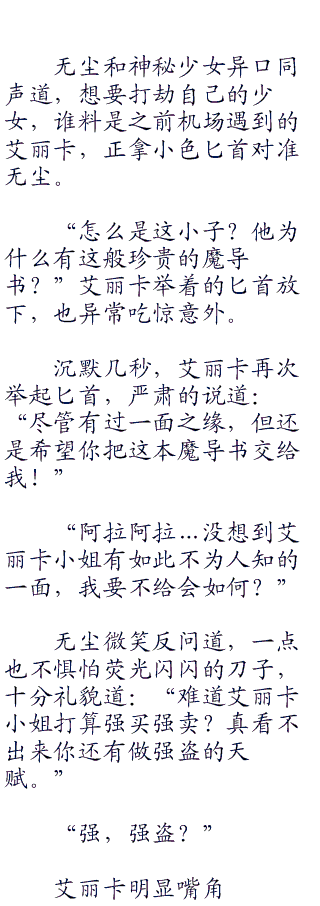 无尘和神秘少女异口同
声道，想要打劫自己的少
女，谁料是之前机场遇到的
艾丽卡，正拿小色匕首对准
无尘。
“怎么是这小子？他为
什么有这般珍贵的魔导
书？”艾丽卡举着的匕首放
下，也异常吃惊意外。
沉默几秒，艾丽卡再次
举起匕首，严肃的说道：
“尽管有过一面之缘，但还
是希望你把这本魔导书交给
我！”
“阿拉阿拉…没想到艾
丽卡小姐有如此不为人知的
一面，我要不给会如何？”
无尘微笑反问道，一点
也不惧怕荧光闪闪的刀子，
十分礼貌道：“难道艾丽卡
小姐打算强买强卖？真看不
出来你还有做强盗的天
赋。”
“强，强盗？”
艾丽卡明显嘴角